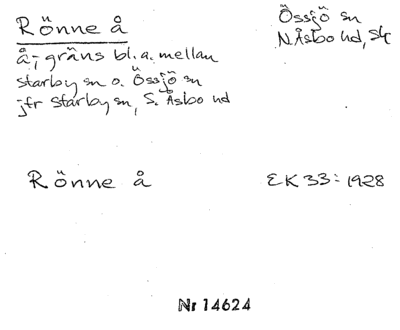 Rönne å
Össjö sn
N. Åsbo hd, Sk
å; gräns bl. a. mellan
Starby sn o. Össjö sn
jfr Starby sn, S. Åsbo hd
Rönne å
EK 33: 1928
Nr 14624